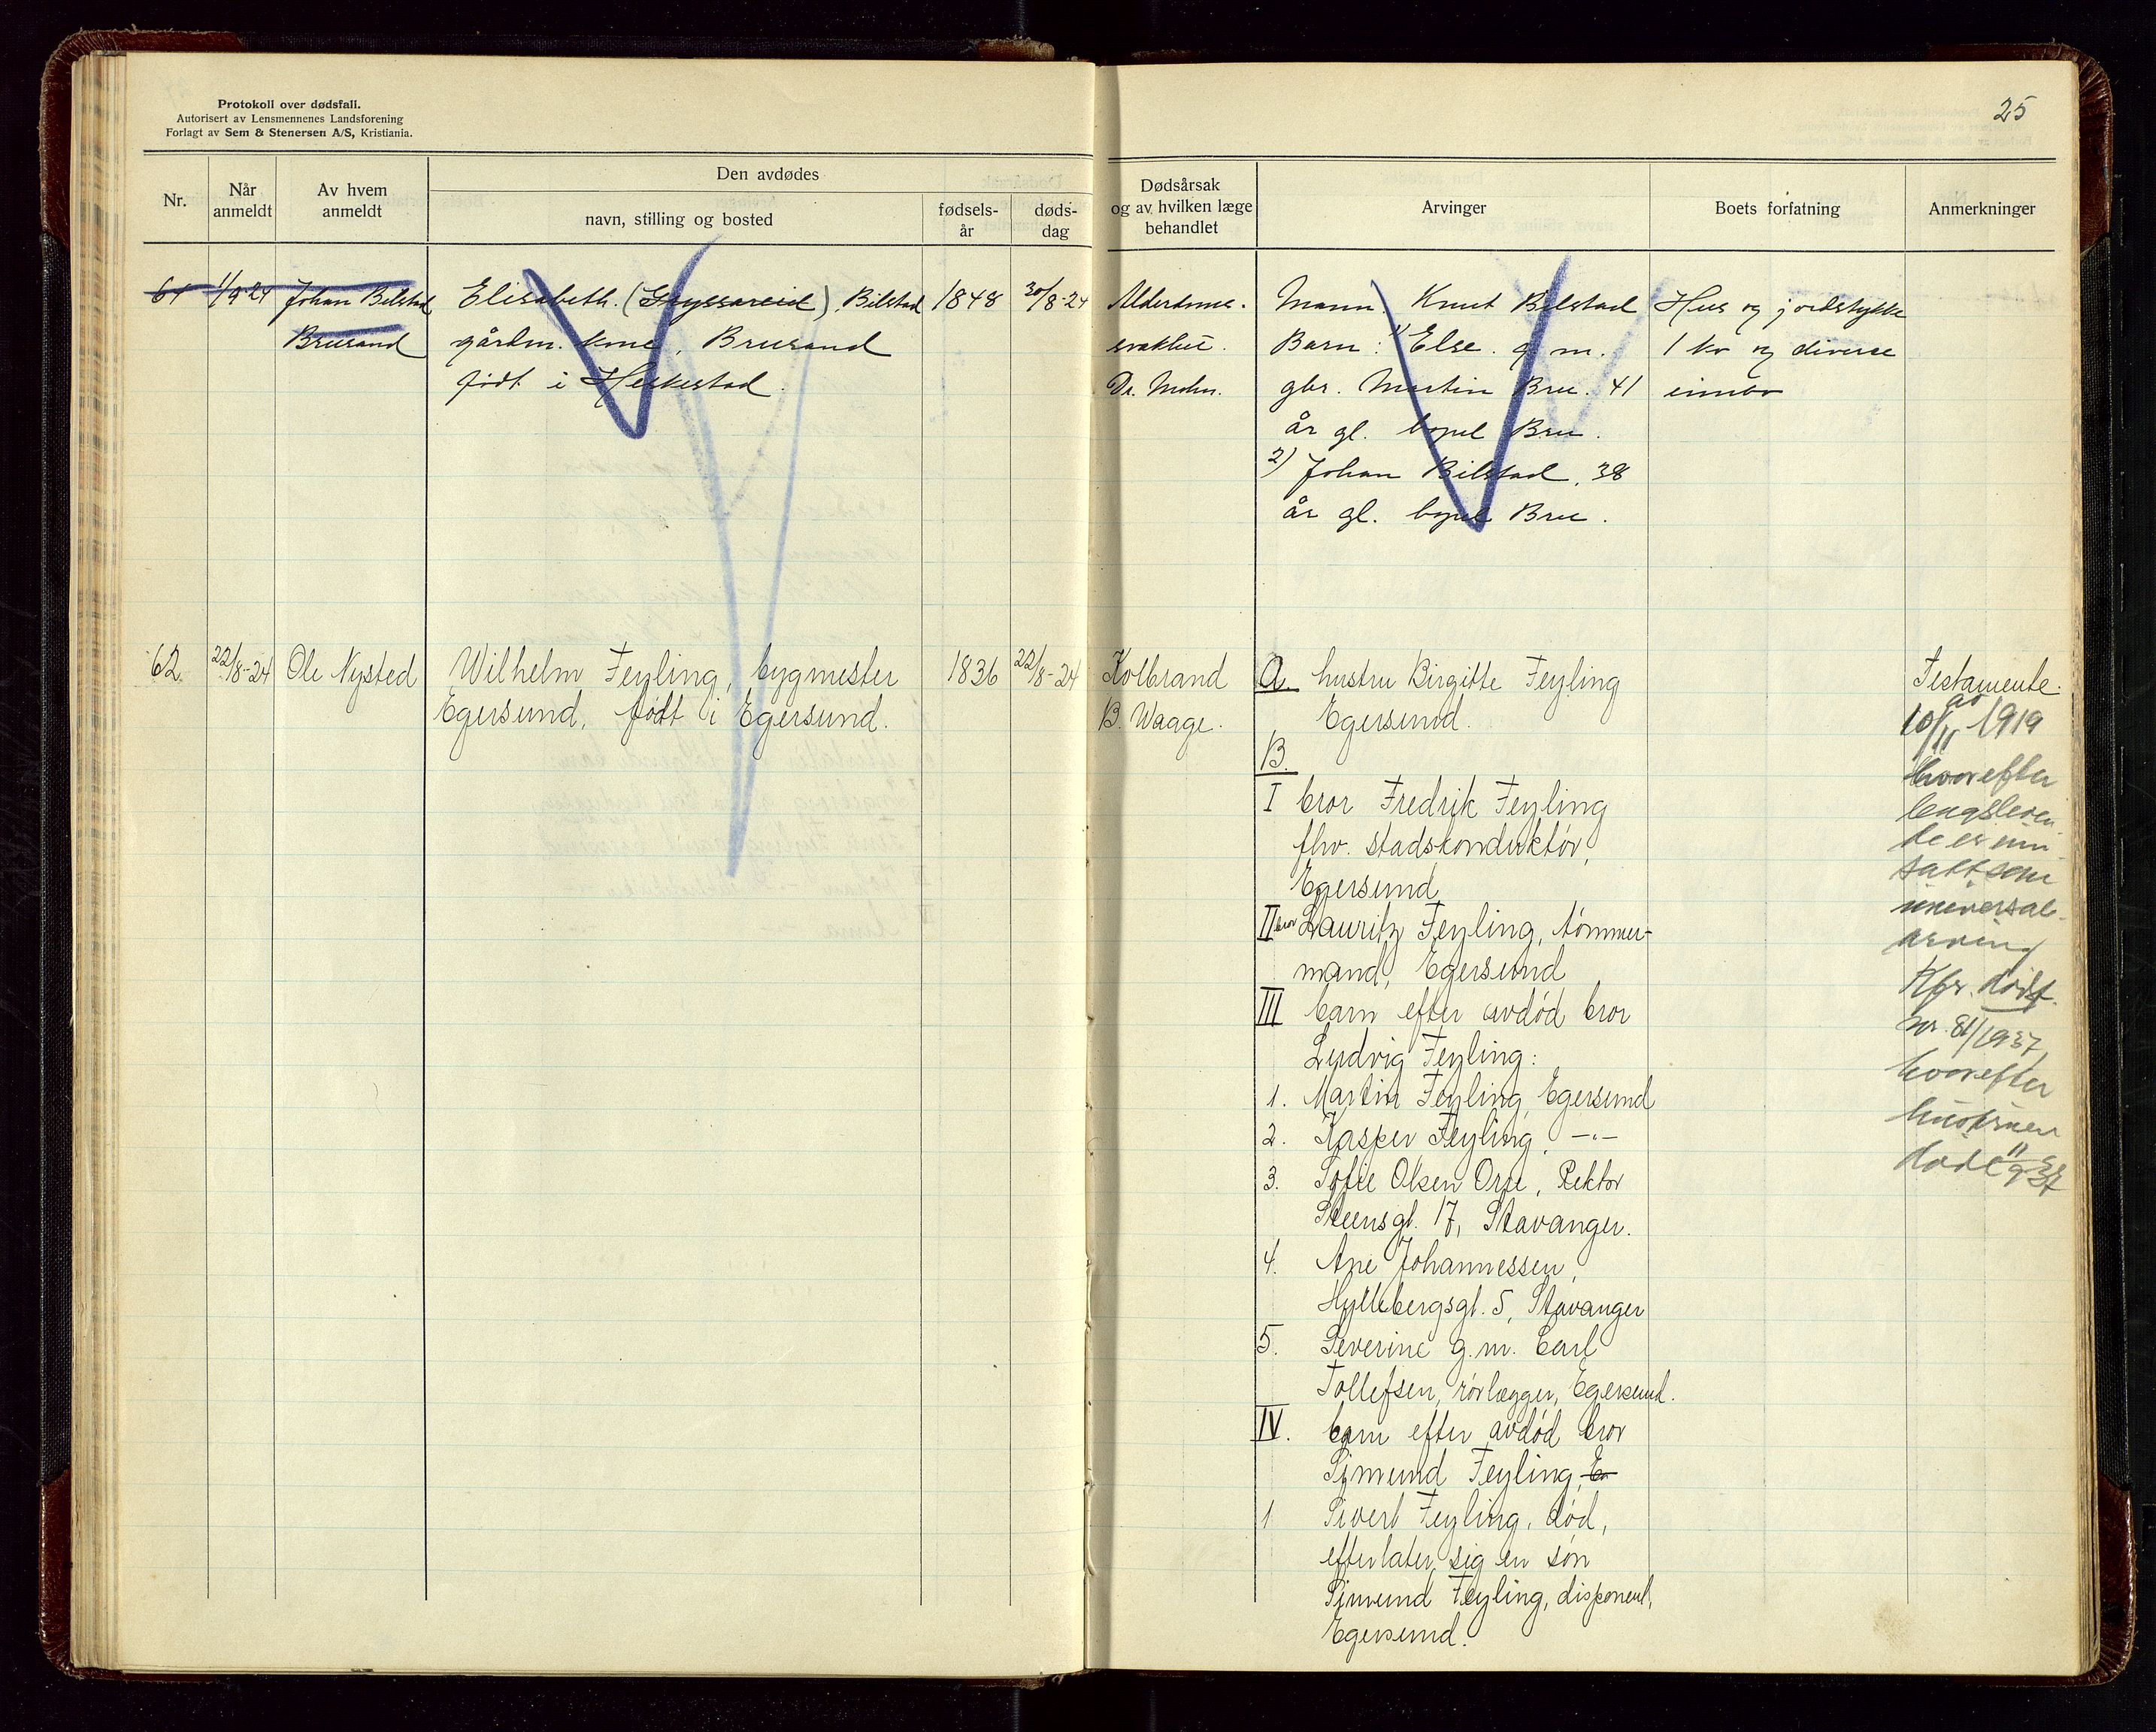 Protokoll over dødsfall.
Autorisert av Lensmennenes Landsforening
Forlagt av Sem & Stenersen A/S, Kristiania.
25
Nr.
Når
anmeldt
Av hvem
anmeldt
Den avdødes
navn, stilling og bosted
fødsels-
år
døds-
dag
Dødsårsak
og av hvilken læge
behandlet
Arvinger
Boets forfatning
Anmerkninger
61
1/9-24
Johan Bilstad
Brusand
Elisabeth. (Gryssareid), Bilstad
gårdm. kone, Brusand
født i Heskestad.
1848
30/8-24
Alderdoms-
svakhet.
Dr. Mohn.
Mann. Knut Bilstad
Barn: 1) Else. g. m.
gbr. Martin Bru. 41
år gl. bopel Bru.
2) Johan Bilstad, 38
år gl. bopel Bru.
Hus og jordstykke
1 ko og diverse
innbo
62.
22/8-24
Ole Nysted
Wilhelm Feyling, bygmester
Egersund, født i Egersund.
1836
22/8-24
Kolbrand
B. Waage.
A. hustru Birgitte Feyling
Egersund.
B.
I bror Fredrik Feyling
fhv. stadskonduktør,
Egersund
II bror Lauritz Feyling, tømmer-
mand, Egersund
III barn efter avdød bror
Ludvig Feyling:
1. Martin Feyling, Egersund
2. Kasper Feyling, -"-
3. Sofie Olsen Orre, Rektor
Steensgt. 17, Stavanger.
4. Ane Johannessen,
Hyllebergsgt. 5, Stavanger
5. Severine g.m. Carl
Tollefsen, rørlægger, Egersund.
IV. barn efter avdød bror
Simund Feyling, E
1 Sivert Feyling, død,
efterlater sig en søn
Simund Feyling, disponent,
Egersund.
Testamente
av
10/11 1919
hvorefter
lengstleven-
de er inn-
satt som
universal-
arving
Kfr. dødsf.
nr. 81/1937,
hvorefter
hustruen
døde 11/9 37